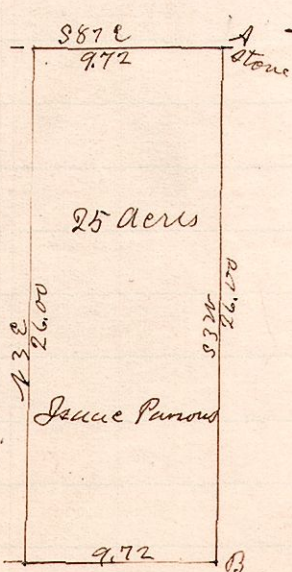 S87E
9.72
A
Stone
25 Acres
N3E
26.00
S3W
26.00
Isaac Parsons
9.72
B